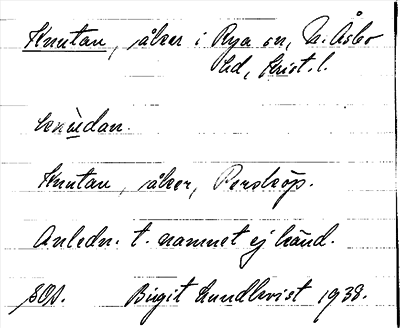 Knutan, åker i Rya sn, N. Åsbo
hd, Krist. l.
knùdan.
Knutan, åker, Perstorp.
Anledn. t. namnet ej känd.
Birgit Lundkvist 1938.